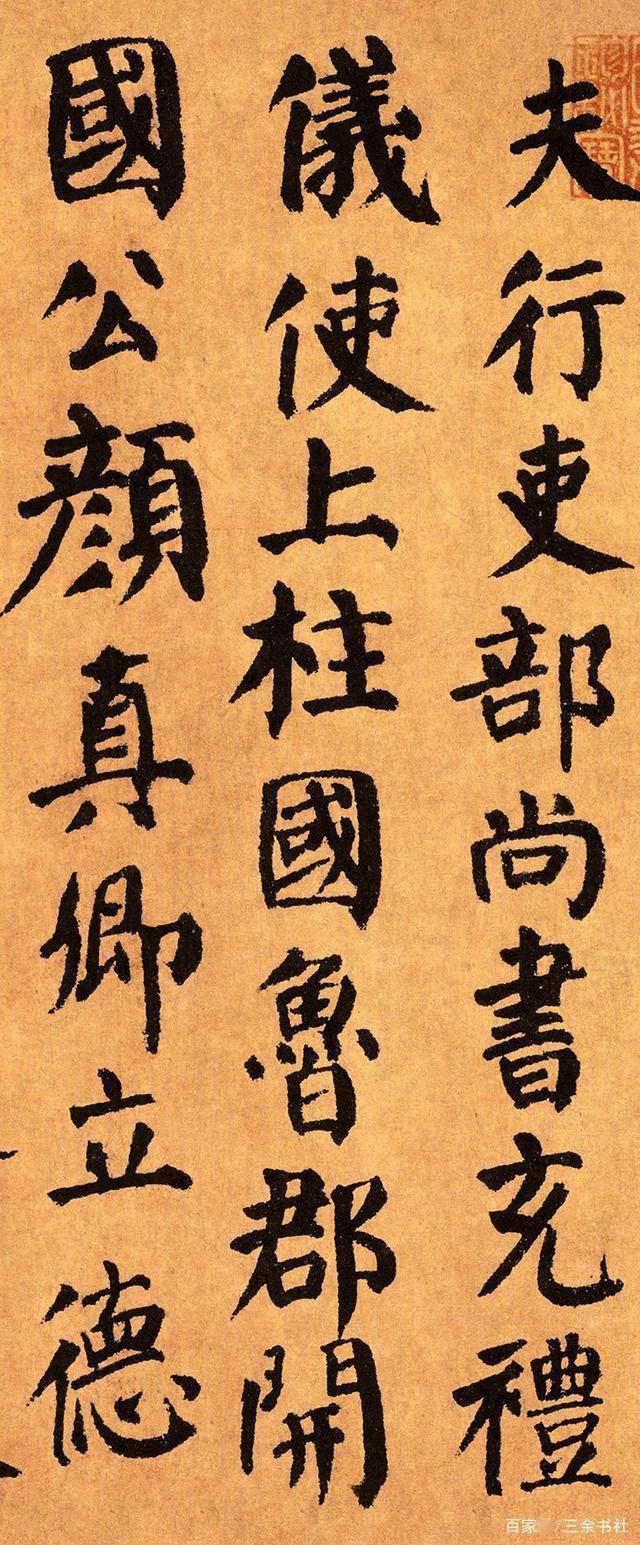 夫行吏部尚書充禮
儀使上柱國魯郡開
國公顔真卿立德
百家 /三余书社